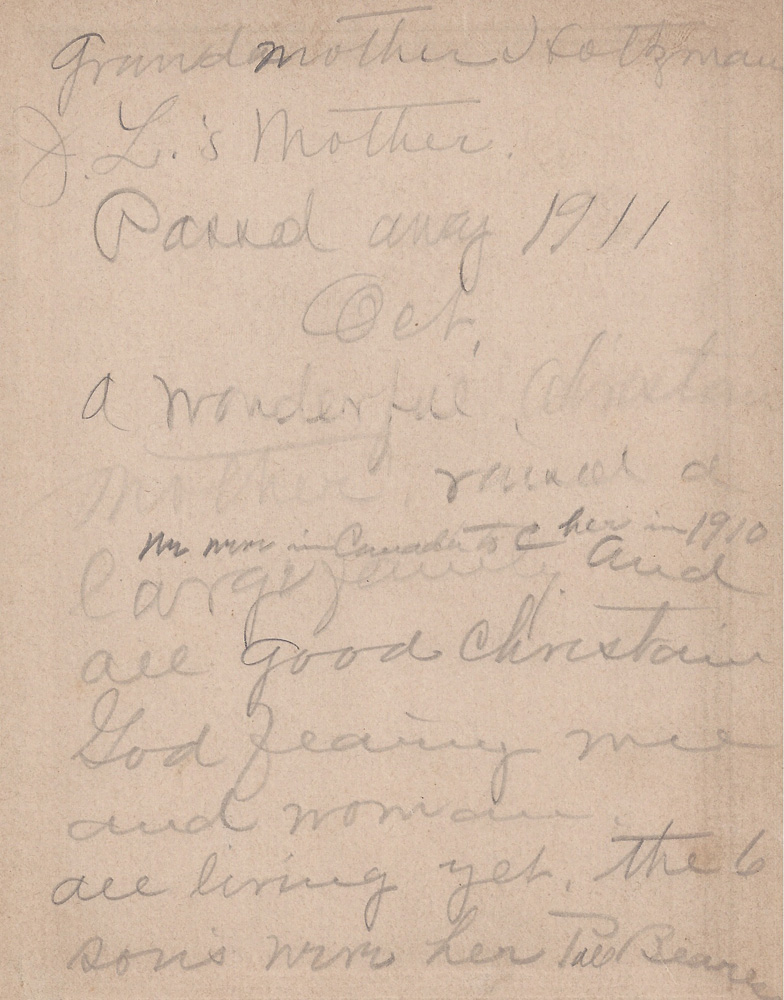 Grandmother Holtzman
J. L.'s Mother.
Passed away 1911
Oct,
a wonderful Christain
Mother, raised a
We were in Canada to C her in 1910
large family and
all good Christain
God fearing men
and woman.
all living yet, the 6
sons were her Pall Beares